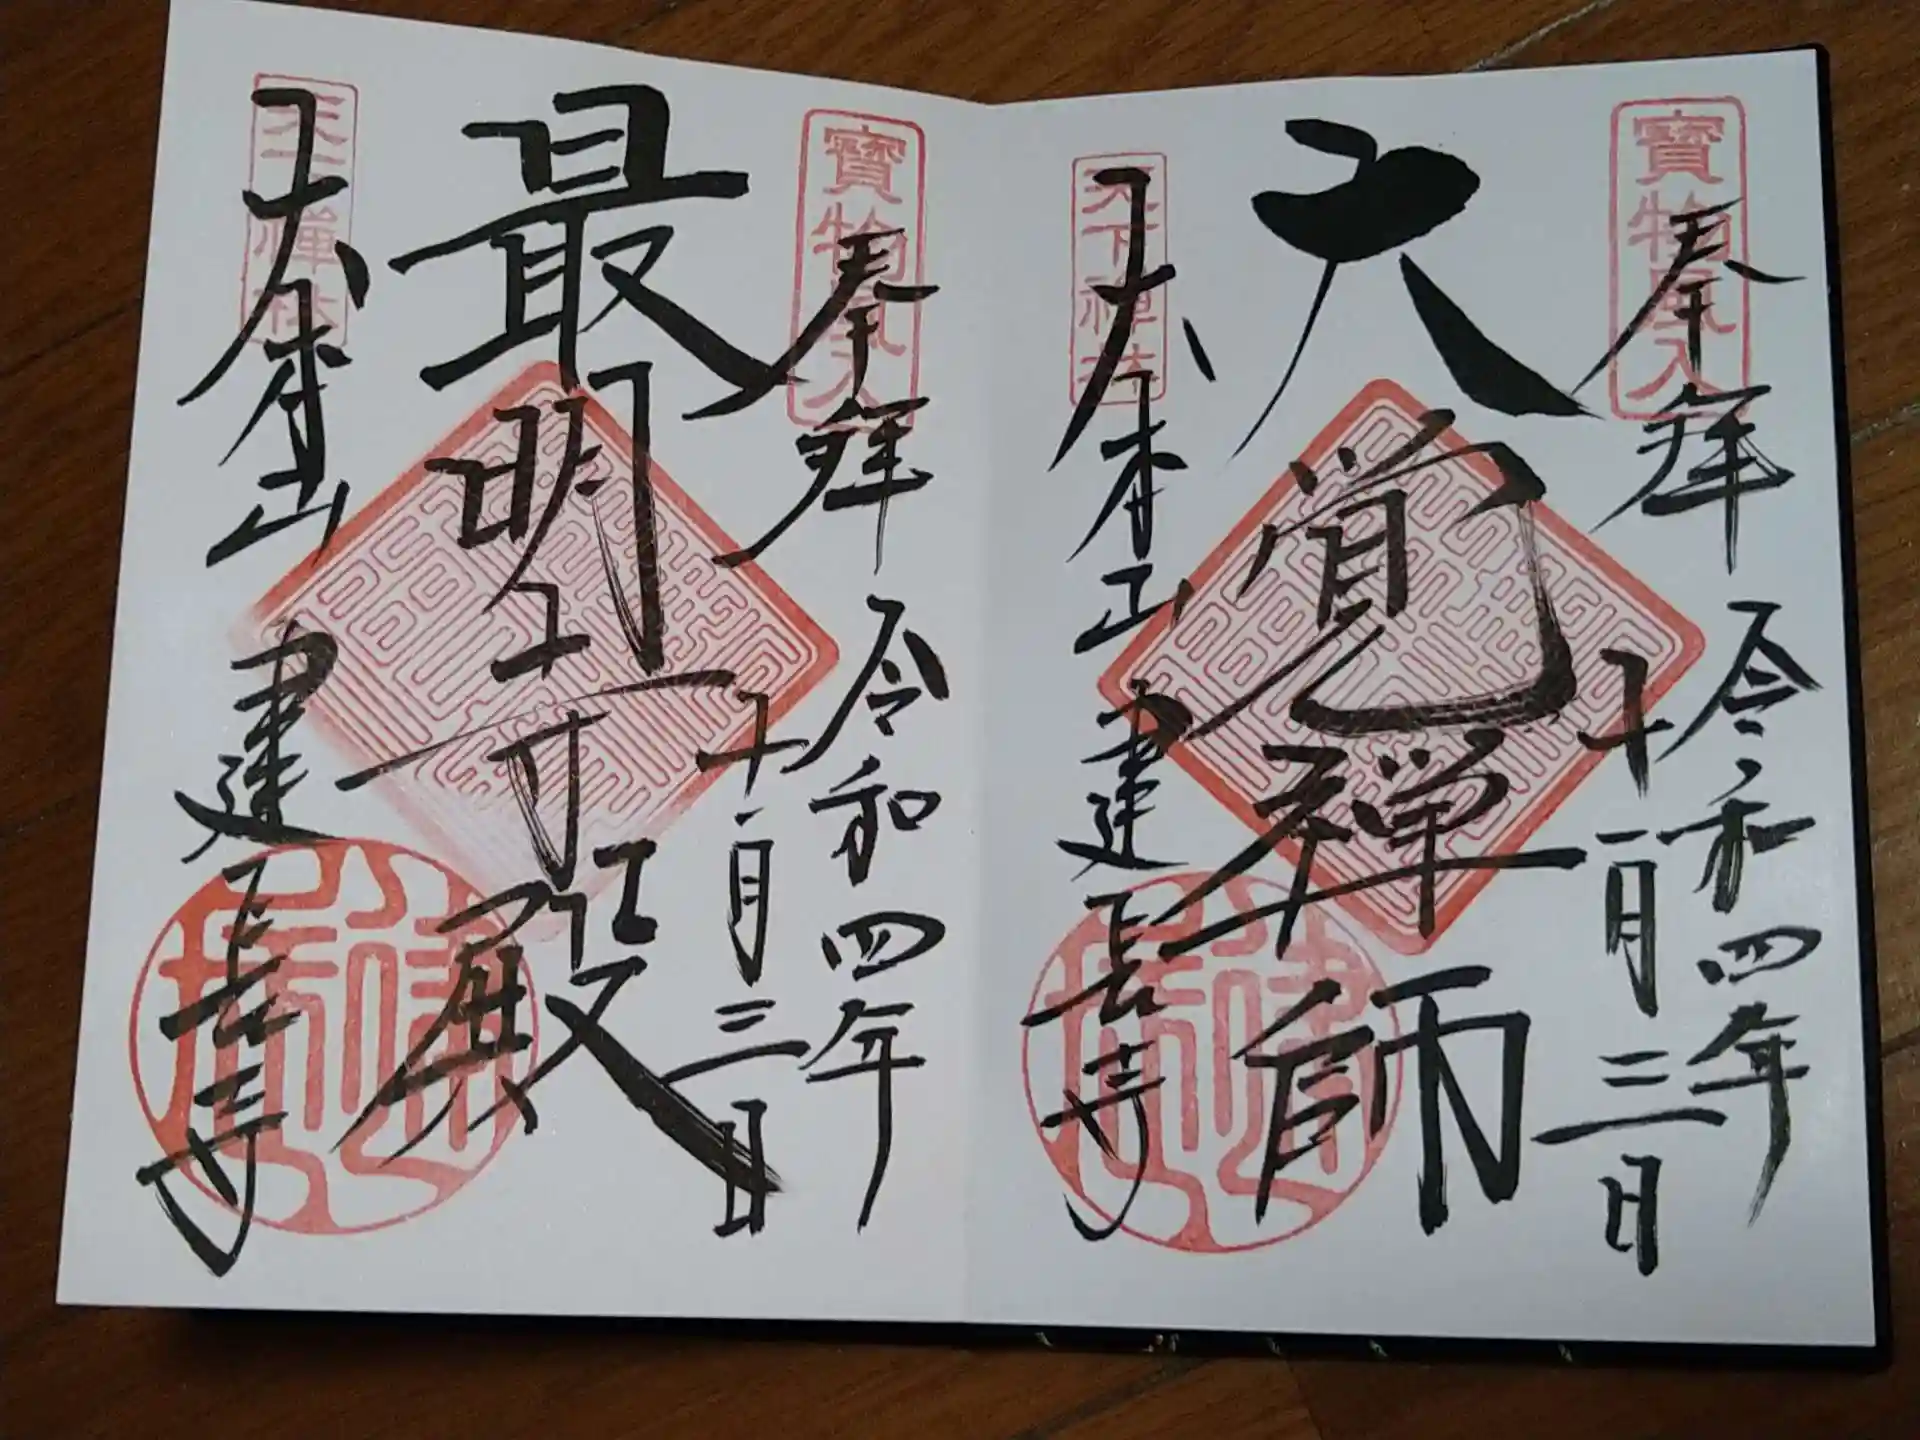 寶物風入
奉拝
令和四年
十一月三日
大覚禅師
天下禅林
大本山
建長寺
寶物風入
奉拝
令和四年
十一月三日
最明寺殿
天下禅林
大本山
建長寺